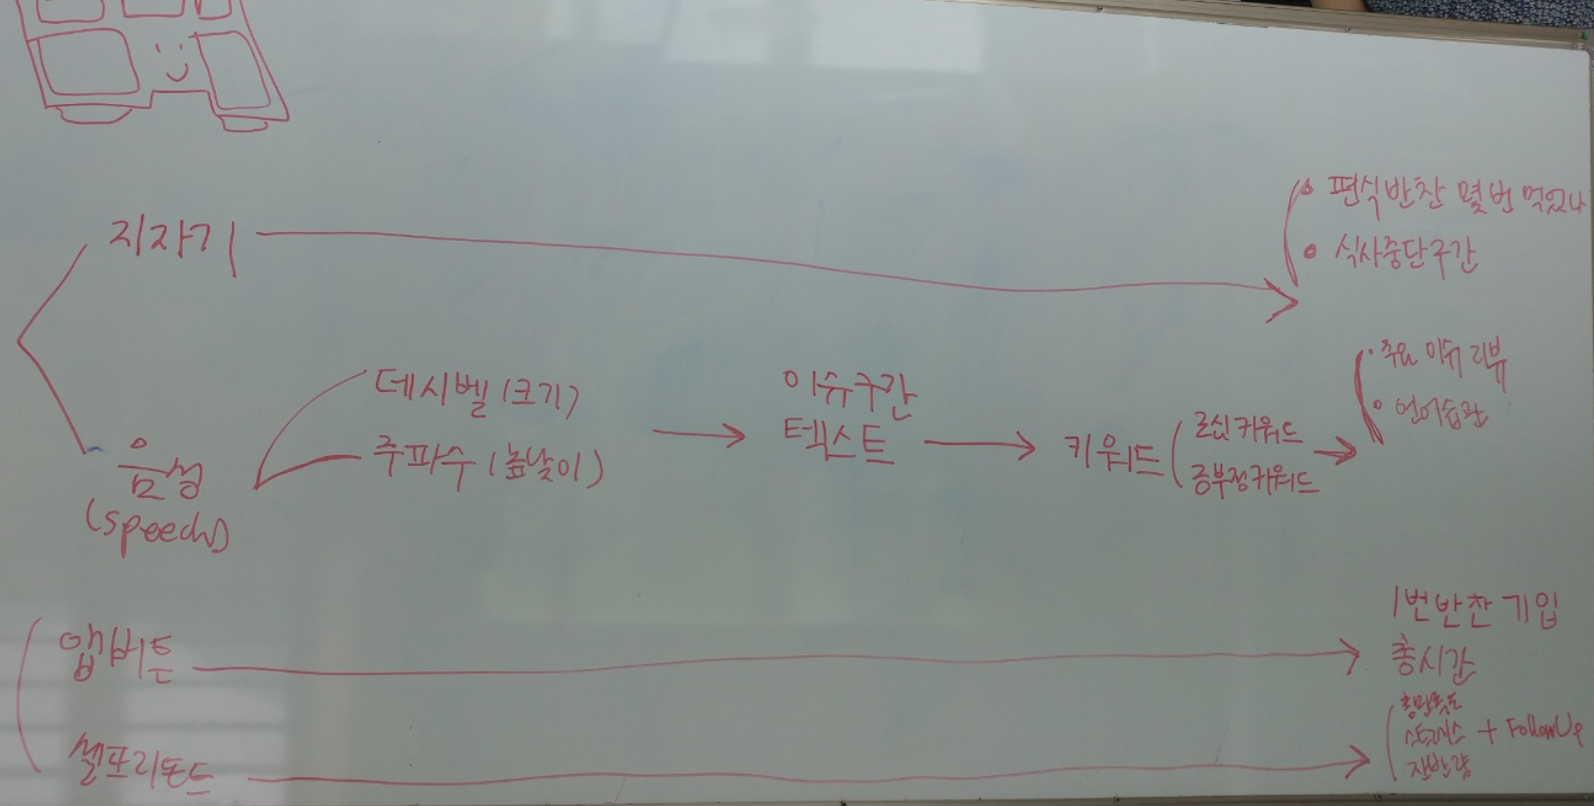 지자기
편식반찬 몇 번 먹었나
식사중단구간
음성
(speech)
데시벨 (크기)
주파수 (높낮이)
이슈구간
텍스트
키워드
로신키워드
긍부정키워드
주요 이슈 리뷰
언어습관
앱버튼
1번반찬 기입
총시간
셀프리포트
총만족도
스트레스 + FollowUp
잔반량